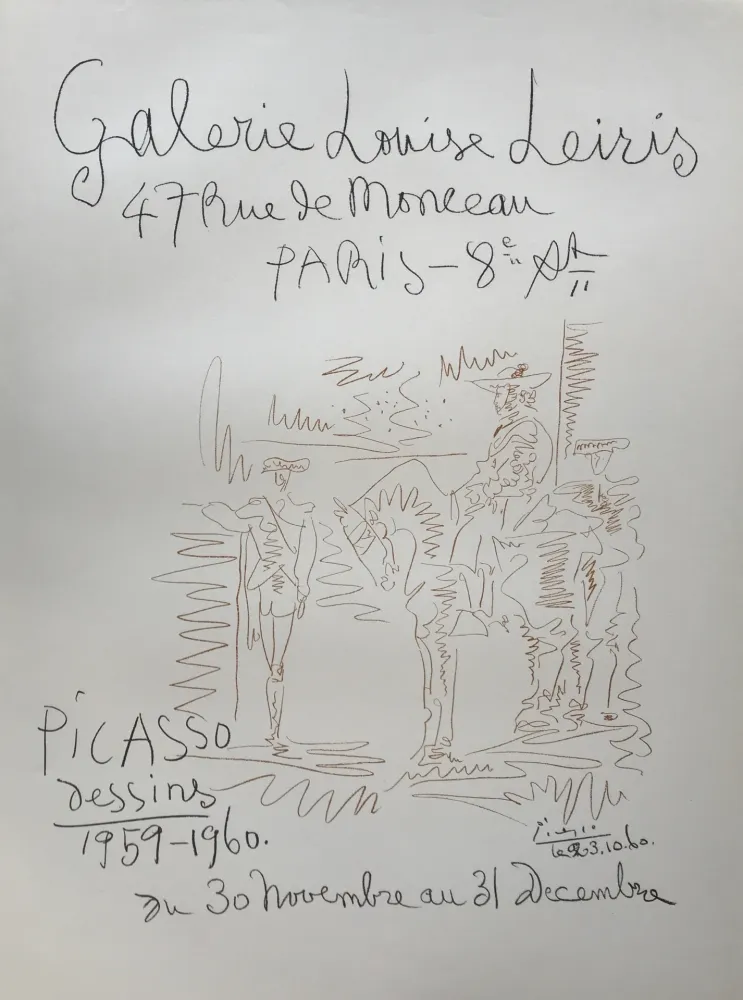 Galerie Louise Leiris
47 Rue de Monceau
PARIS - 8e Ar
PICASSO
dessins
1959-1960.
Picasso
le 23.10.60.
du 30 Novembre au 31 Decembre